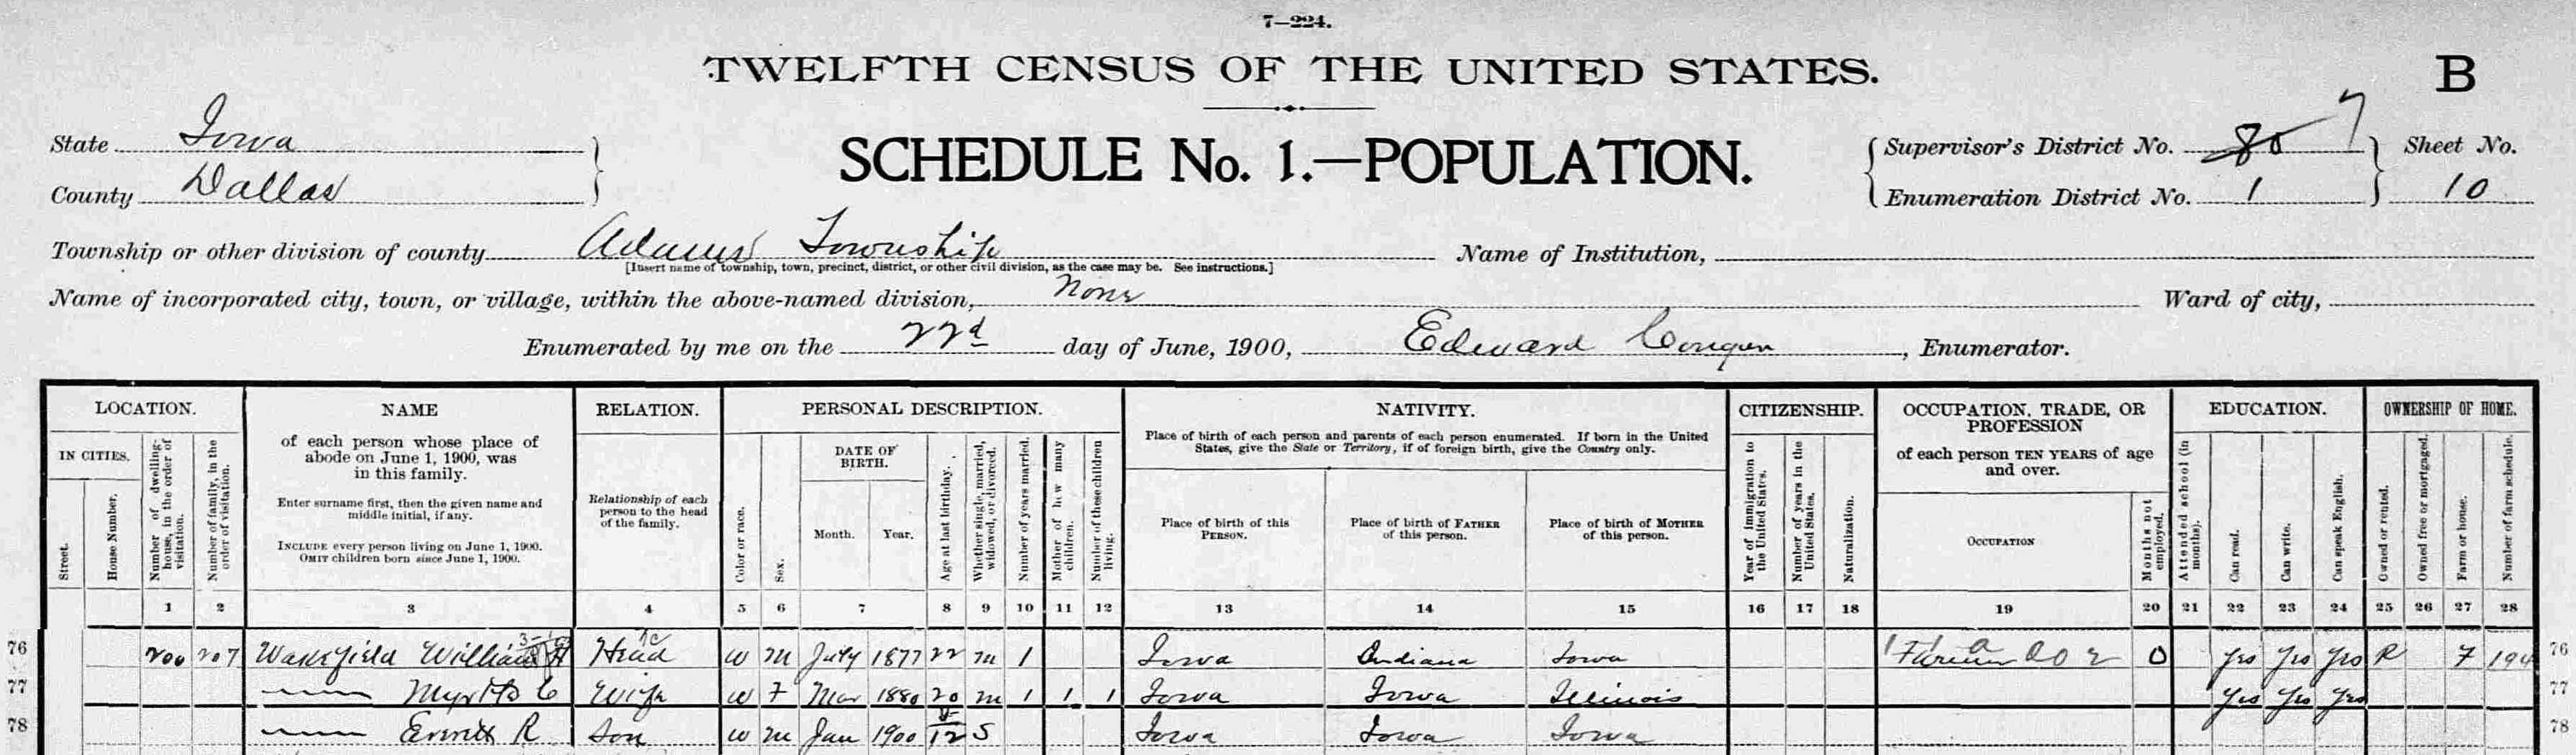 7—224.
TWELFTH CENSUS OF THE UNITED STATES.
B
State Iowa
County Dallas
SCHEDULE No. 1.—POPULATION.
Supervisor's District No. 80 7
Enumeration District No. 1
Sheet No.
10
Township or other division of county Adams Township
[Insert name of township, town, precinct, district, or other civil division, as the case may be. See instructions.]
Name of Institution,
Name of incorporated city, town, or village, within the above-named division, None
Ward of city,
Enumerated by me on the 22d day of June, 1900, Edward Conger, Enumerator.
LOCATION.
IN CITIES.
Street.
House Number.
Number of dwelling-house, in the order of visitation.
Number of family, in the order of visitation.
NAME
of each person whose place of
abode on June 1, 1900, was
in this family.
Enter surname first, then the given name and
middle initial, if any.
INCLUDE every person living on June 1, 1900.
OMIT children born since June 1, 1900.
RELATION.
Relationship of each
person to the head
of the family.
PERSONAL DESCRIPTION.
Color or race.
Sex.
DATE OF
BIRTH.
Month. Year.
Age at last birthday.
Whether single, married, widowed, or divorced.
Number of years married.
Mother of how many children.
Number of these children living.
NATIVITY.
Place of birth of each person and parents of each person enumerated. If born in the United
States, give the State or Territory, if of foreign birth, give the Country only.
Place of birth of this
PERSON.
Place of birth of FATHER
of this person.
Place of birth of MOTHER
of this person.
CITIZENSHIP.
Year of immigration to the United States.
Number of years in the United States.
Naturalization.
OCCUPATION, TRADE, OR
PROFESSION
of each person TEN YEARS of age
and over.
OCCUPATION
Months not employed.
EDUCATION.
Attended school (in months).
Can read.
Can write.
Can speak English.
OWNERSHIP OF HOME.
Owned or rented.
Owned free or mortgaged.
Farm or house.
Number of farm schedule.
1 2 3 4 5 6 7 8 9 10 11 12 13 14 15 16 17 18 19 20 21 22 23 24 25 26 27 28
76 200 207 Wakefield William H Head W M July 1877 22 M 1 Iowa Indiana Iowa Farmer 0 Yes Yes Yes R F 194 76
77 —— C Wife W F Mar 1880 20 M 1 1 1 Iowa Iowa Illinois Yes Yes Yes 77
78 —— Everett R Son W M Jan 1900 12 S Iowa Iowa Iowa 78